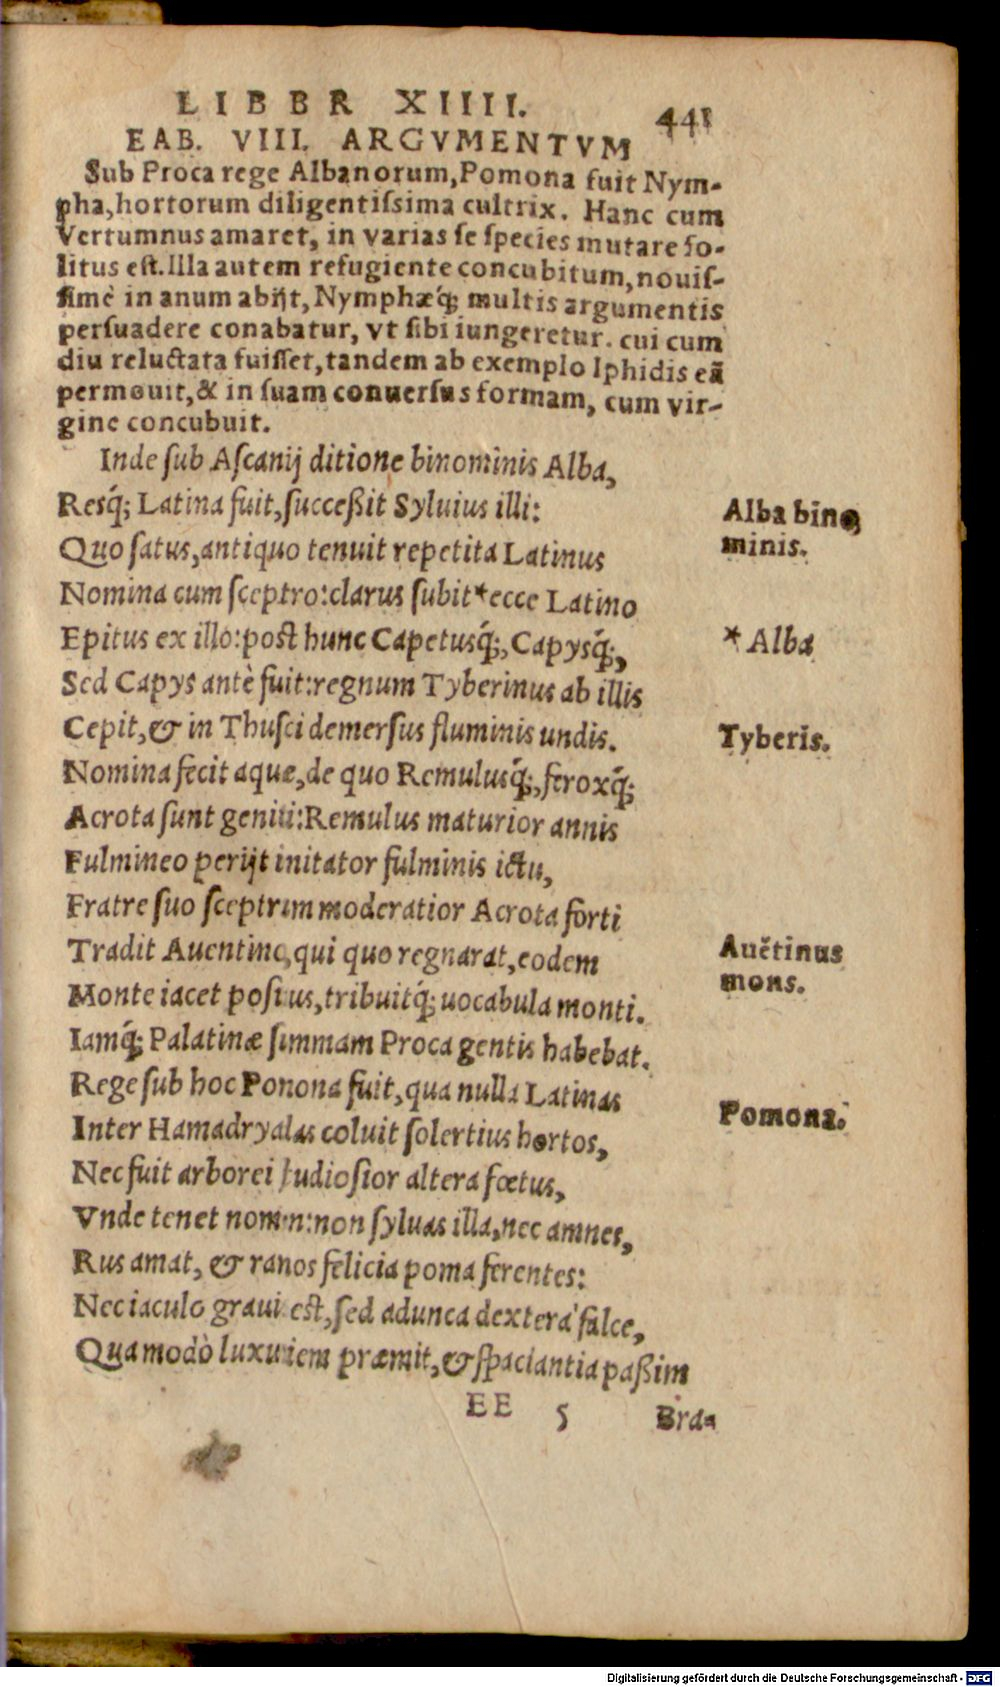 LIBBR XIIII. 441
EAB. VIII. ARGVMENTVM
Sub Proca rege Albanorum, Pomona fuit Nym-
pha, hortorum diligentiſsima cultrix. Hanc cum
Vertumnus amaret, in varias ſe ſpecies mutare ſo-
litus eſt. Illa autem refugiente concubitum, nouiſ-
ſimè in anum abijt, Nymphæq́; multis argumentis
perſuadere conabatur, vt ſibi iungeretur. cui cum
diu reluctata fuiſſet, tandem ab exemplo Iphidis eā
permouit, & in ſuam conuerſus formam, cum vir-
gine concubuit.
Inde ſub Aſcanij ditione binominis Alba,
Resq́; Latina fuit, ſucceßit Syluius illi:
Quo ſatus, antiquo tenuit repetita Latinus
Nomina cum ſceptro: clarus ſubit * ecce Latino
Epitus ex illo: poſt hunc Capetusq́;, Capysq́;,
Sed Capys antè fuit: regnum Tyberinus ab illis
Cepit, & in Thuſci demerſus fluminis undis.
Nomina fecit aquæ, de quo Remulusq́;, feroxq́;
Acrota ſunt geniti: Remulus maturior annis
Fulmineo perijt initator fulminis ictu,
Fratre ſuo ſceptrum moderatior Acrota forti
Tradit Auentino, qui quo regnarat, eodem
Monte iacet poſitus, tribuitq́; uocabula monti.
Iamq́; Palatinæ ſummam Proca gentis habebat.
Rege ſub hoc Ponona fuit, qua nulla Latinas
Inter Hamadryalas coluit ſolertius hortos,
Nec fuit arborei ſtudioſior altera fœtus,
Vnde tenet nomen: non ſyluas illa, nec amnes,
Rus amat, & ranos felicia poma ferentes:
Nec iaculo grauis eſt, ſed adunca dextera falce,
Qua modò luxuriem præmit, & ſpaciantia paßim
EE 5 Bra-
Alba bino
minis.
* Alba
Tyberis.
Auētinus
mons.
Pomona.
Digitalisierung gefördert durch die Deutsche Forschungsgemeinschaft - DFG